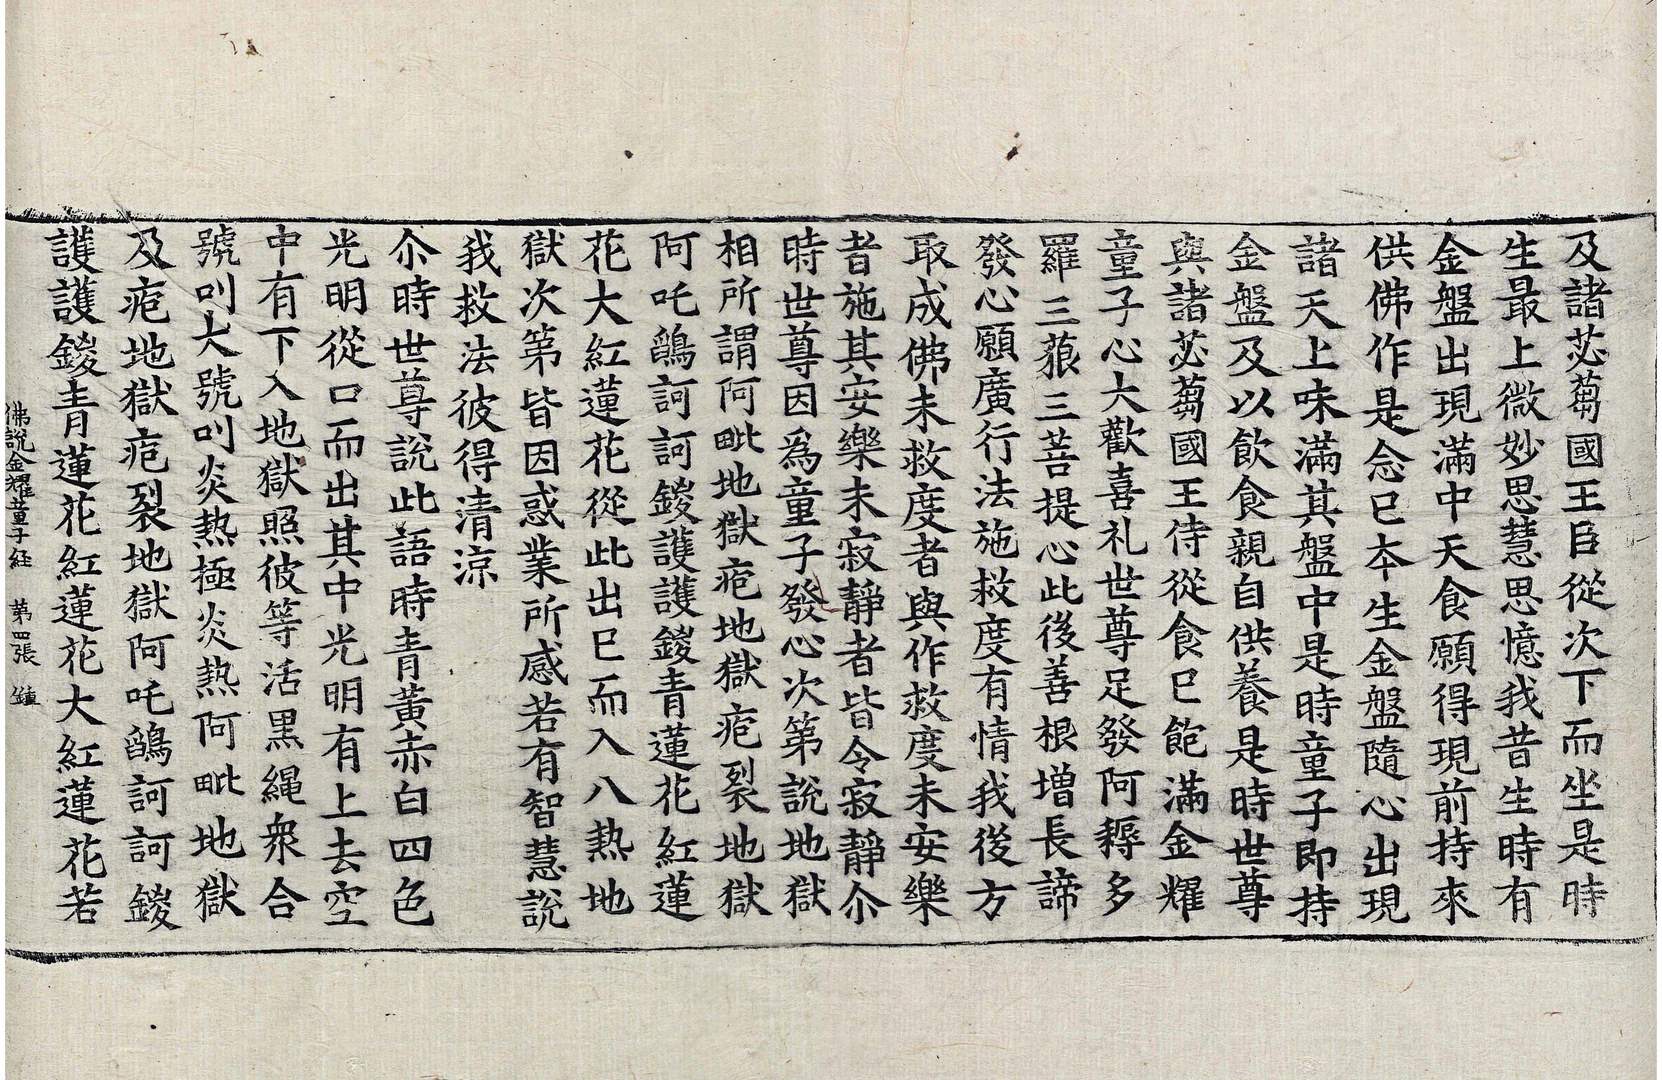 及諸苾蒭國王臣從次下而坐是時
生最上微妙思慧思憶我昔生時有
金盤出現滿中天食願得現前持來
供佛作是念已夲生金盤隨心出現
諸天上味滿其盤中是時童子即持
金盤及以飲食親自供養是時世尊
與諸苾蒭國王侍從食已飽滿金耀
童子心大歡喜礼世尊足發阿耨多
羅三藐三菩提心此後善根增長諦
發心願廣行法施救度有情我後方
取成佛未救度者與作救度未安樂
者施其安樂未寂靜者皆令寂靜尒
時世尊因爲童子發心次第說地獄
相所謂阿毗地獄疱地獄疱裂地獄
阿吒鵮訶訶鍐護護鍐青蓮花紅蓮
花大紅蓮花從此出已而入八熱地
獄次第皆因惑業所感若有智慧說
我救法彼得清涼
尒時世尊說此語時青黃赤白四色
光明從口而出其中光明有上去空
中有下入地獄照彼等活黑繩衆合
號叫大號叫炎熱極炎熱阿毗地獄
及疱地獄疱裂地獄阿吒鵮訶訶鍐
護護鍐青蓮花紅蓮花大紅蓮花若
佛說金耀童子経 第四張 鍾